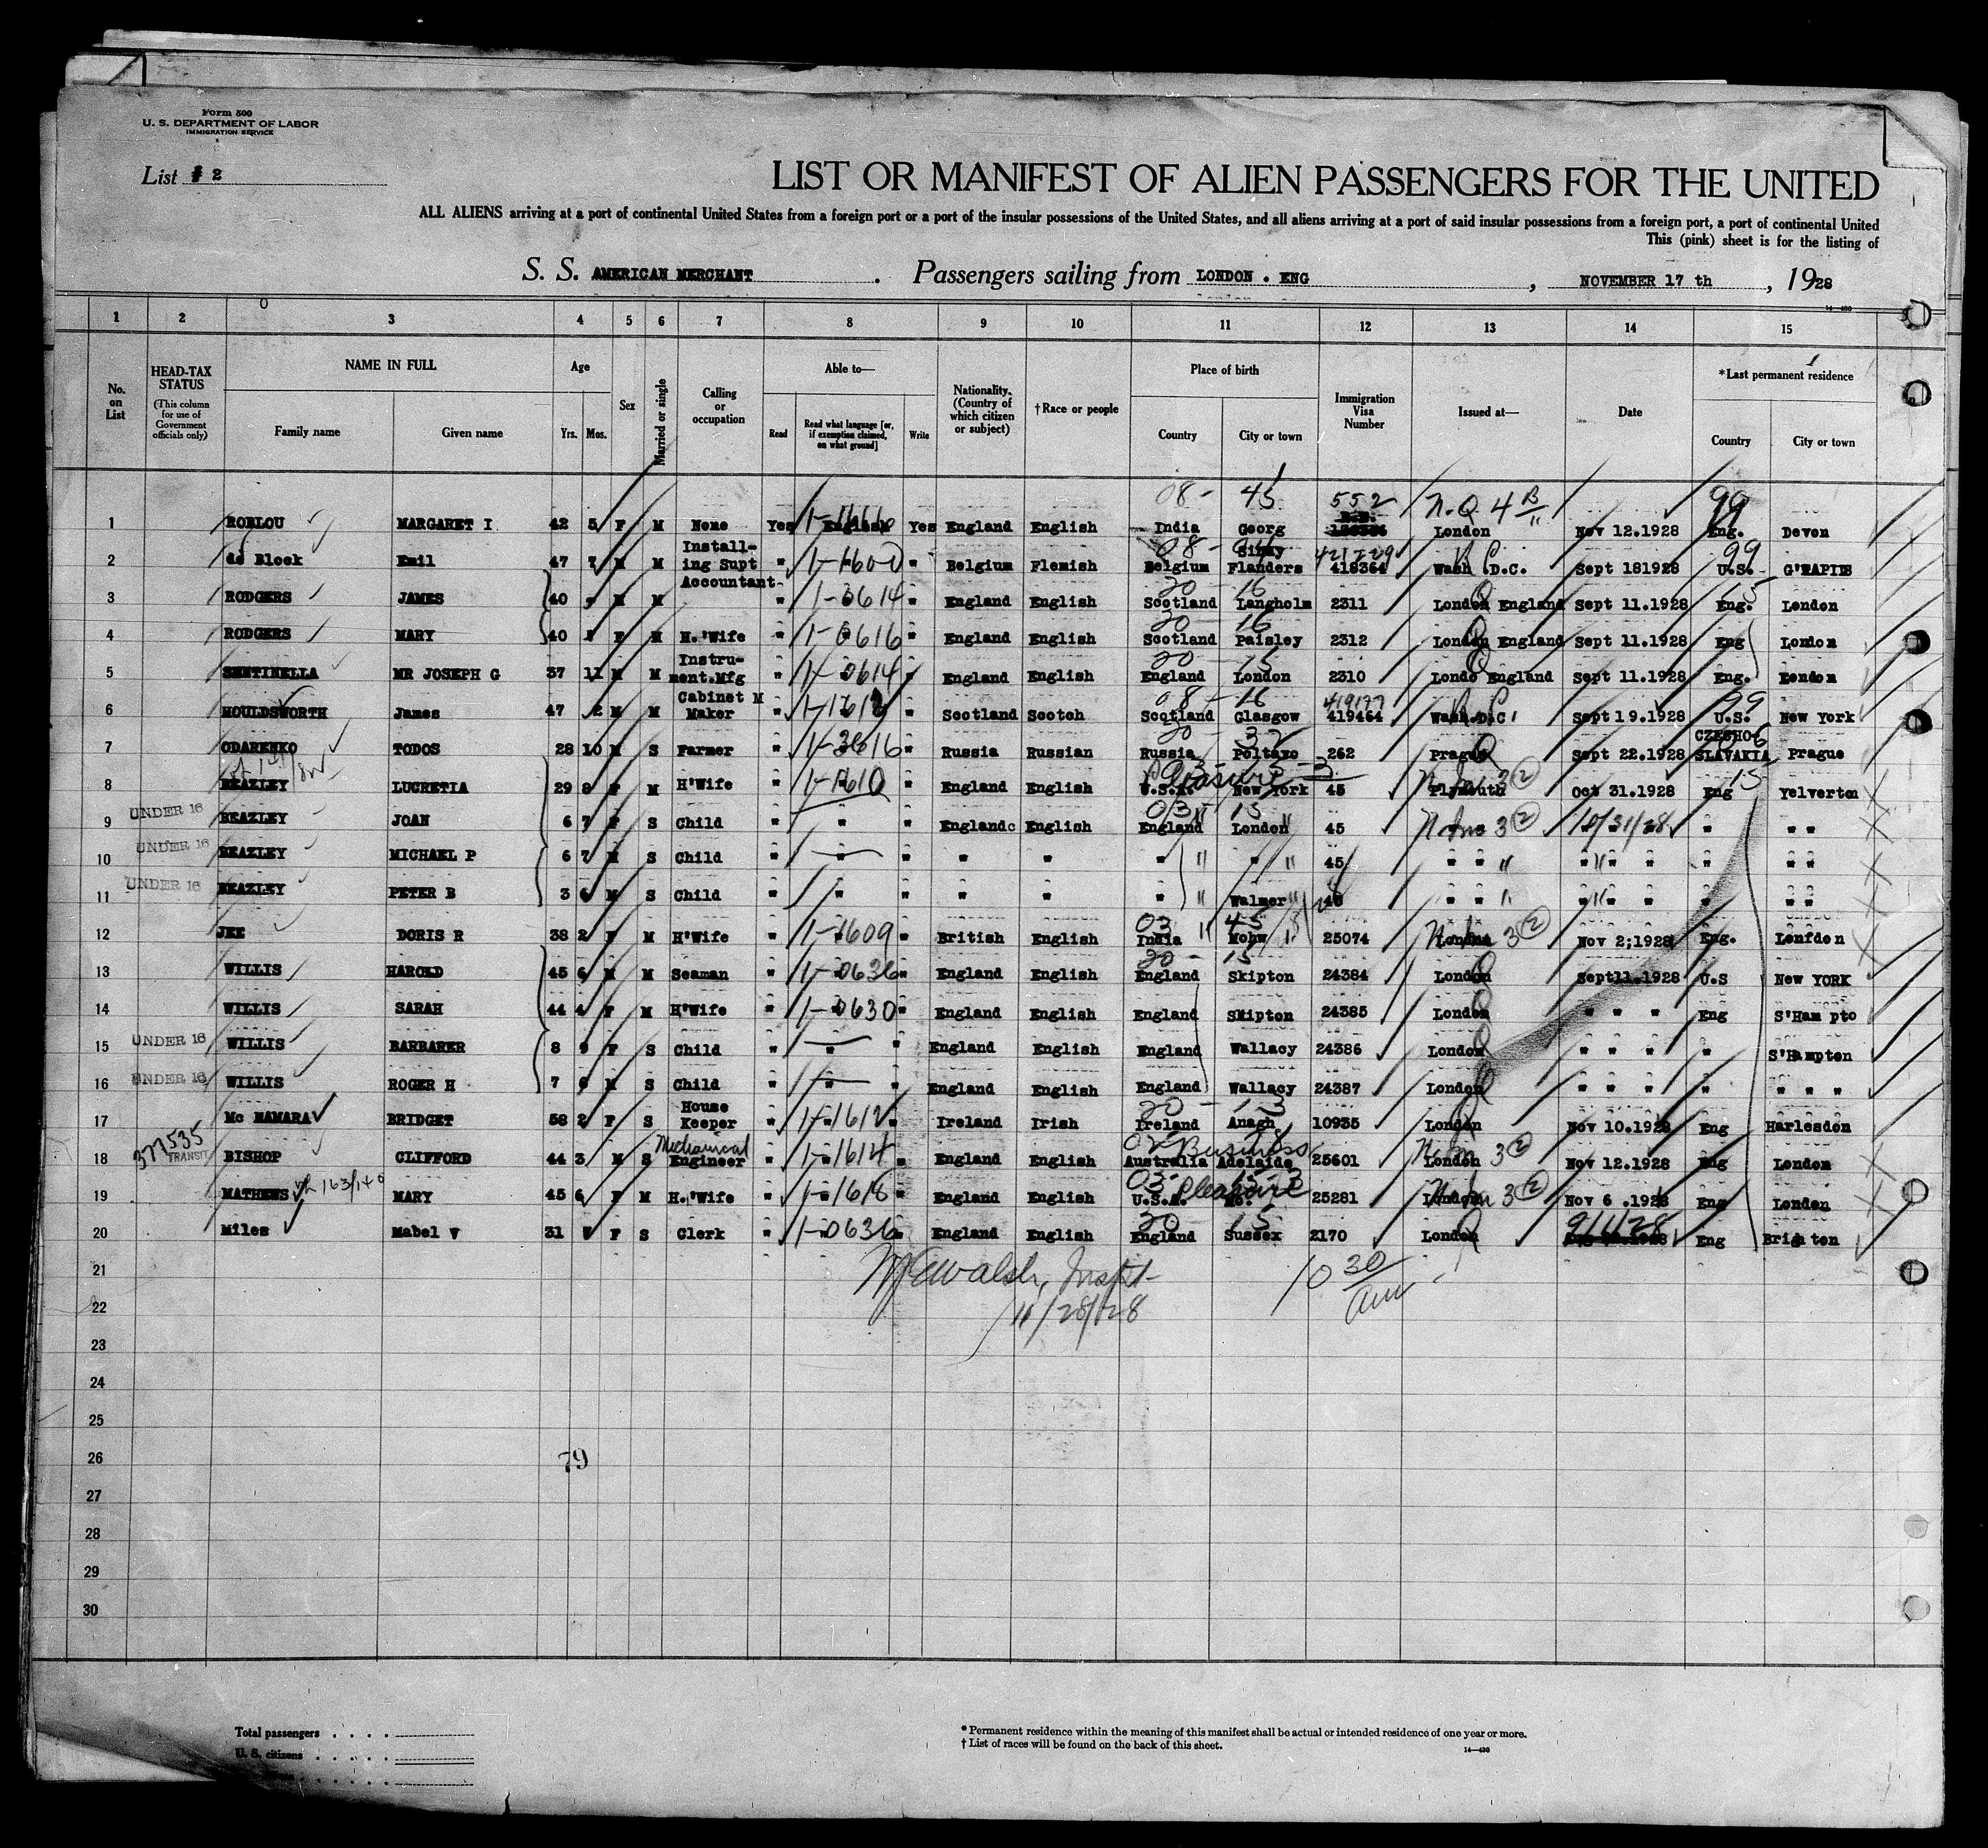 Form 500
U. S. DEPARTMENT OF LABOR
IMMIGRATION SERVICE
List # 2
LIST OR MANIFEST OF ALIEN PASSENGERS FOR THE UNITED
ALL ALIENS arriving at a port of continental United States from a foreign port or a port of the insular possessions of the United States, and all aliens arriving at a port of said insular possessions from a foreign port, a port of continental United
This (pink) sheet is for the listing of
S. S. AMERICAN MERCHANT . Passengers sailing from LONDON . ENG , NOVEMBER 17 th , 1928
1 2 3 4 5 6 7 8 9 10 11 12 13 14 15
No. on List
HEAD-TAX STATUS (This column for use of Government officials only)
NAME IN FULL Family name Given name
Age Yrs. Mos.
Sex
Married or single
Calling or occupation
Able to— Read Read what language [or, if exemption claimed, on what ground] Write
Nationality. (Country of which citizen or subject)
† Race or people
Place of birth Country City or town
Immigration Visa Number
Issued at—
Date
*Last permanent residence Country City or town
08- 45 552 N.Q 4 99
1 ROBLOU MARGARET I 42 5 F M None Yes English Yes England English India Georg London Nov 12.1928 Eng. Devon
2 de Block Emil 47 7 M M Installing Supt " 1-1600 " Belgium Flemish Belgium Flanders 418364 Wash D.C. Sept 181928 U.S. G'RAPIDS
3 RODGERS JAMES 40 M M Accountant " 1-3614 " England English Scotland Langholm 2311 London England Sept 11.1928 Eng. London
4 RODGERS MARY 40 F M H.'Wife " 1-0616 " England English Scotland Paisley 2312 London England Sept 11.1928 Eng London
5 SENTINELLA MR JOSEPH G 37 11 M M Instrument.Mfg " 1-0614 " England English England London 2310 Londo England Sept 11.1928 Eng. London
6 HOULDSWORTH James 47 2 M M Cabinet M Maker " " Scotland Scotch Scotland Glasgow 419464 Wash.D.C Sept 19.1928 U.S. New York
7 ODARENKO TODOS 28 10 M S Farmer " 1-3616 " Russia Russian Russia Poltavo 262 Prague Sept 22.1928 CZECHO-SLAVAKIA Prague
8 BEAZLEY LUCRETIA 29 8 F M H'Wife " 1-1610 " England English U.S.A. New York Pleasure 45 Plymouth Oct 31.1928 Eng Yelverton
UNDER 16 9 BEAZLEY JOAN 6 7 F S Child " " " Englandc English England London 45 10/31/28 " " "
UNDER 16 10 BEAZLEY MICHAEL P 6 7 M S Child " " " " " " " 45 " " " " " " " "
UNDER 16 11 BEAZLEY PETER B 3 6 M S Child " " " " " " Walmer 45 " " " " " " " "
12 JEE DORIS R 38 2 F M H'Wife " 1-1609 " British English India Mohw 25074 London Nov 2;1928 Eng. Lonfdon
13 WILLIS HAROLD 45 6 M M Seaman " 1-0636 " England English England Skipton 24384 London Sept11.1928 U.S New YORK
14 WILLIS SARAH 44 4 F M H'Wife " 1-0630 " England English England Skipton 24385 London " " " Eng S'Ham pto
UNDER 16 15 WILLIS BARBARER 8 9 F S Child " " " England English England Wallacy 24386 London " " " " S'Hampton
UNDER 16 16 WILLIS ROGER H 7 6 M S Child " " " England English England Wallacy 24387 London " " " " " " "
17 Mc NAMARA BRIDGET 58 2 F S House Keeper " 1-1612 " Ireland Irish Ireland Anagh 10935 London Nov 10.1928 Eng Harlesden
TRANSIT 18 BISHOP CLIFFORD 44 3 M S Mechanical Engineer " 1-1614 " England English Australia Adelaide Business 25601 London Nov 12.1928 Eng London
19 MATHEWS MARY 45 6 F M H.'Wife " 1-1618 " England English U.S.A. Pleasure 25281 London Nov 6 .1928 Eng London
20 Miles Mabel V 31 F S Clerk " 1-0636 " England English England Sussex 2170 London 9/11/28 Eng Brighton
21 Walsh, Inspt- 10 30 am
22 11/28/28
23
24
25
26 79
27
28
29
30
Total passengers . . . .
U. S. citizens . . . . .
* Permanent residence within the meaning of this manifest shall be actual or intended residence of one year or more.
† List of races will be found on the back of this sheet.
14—430